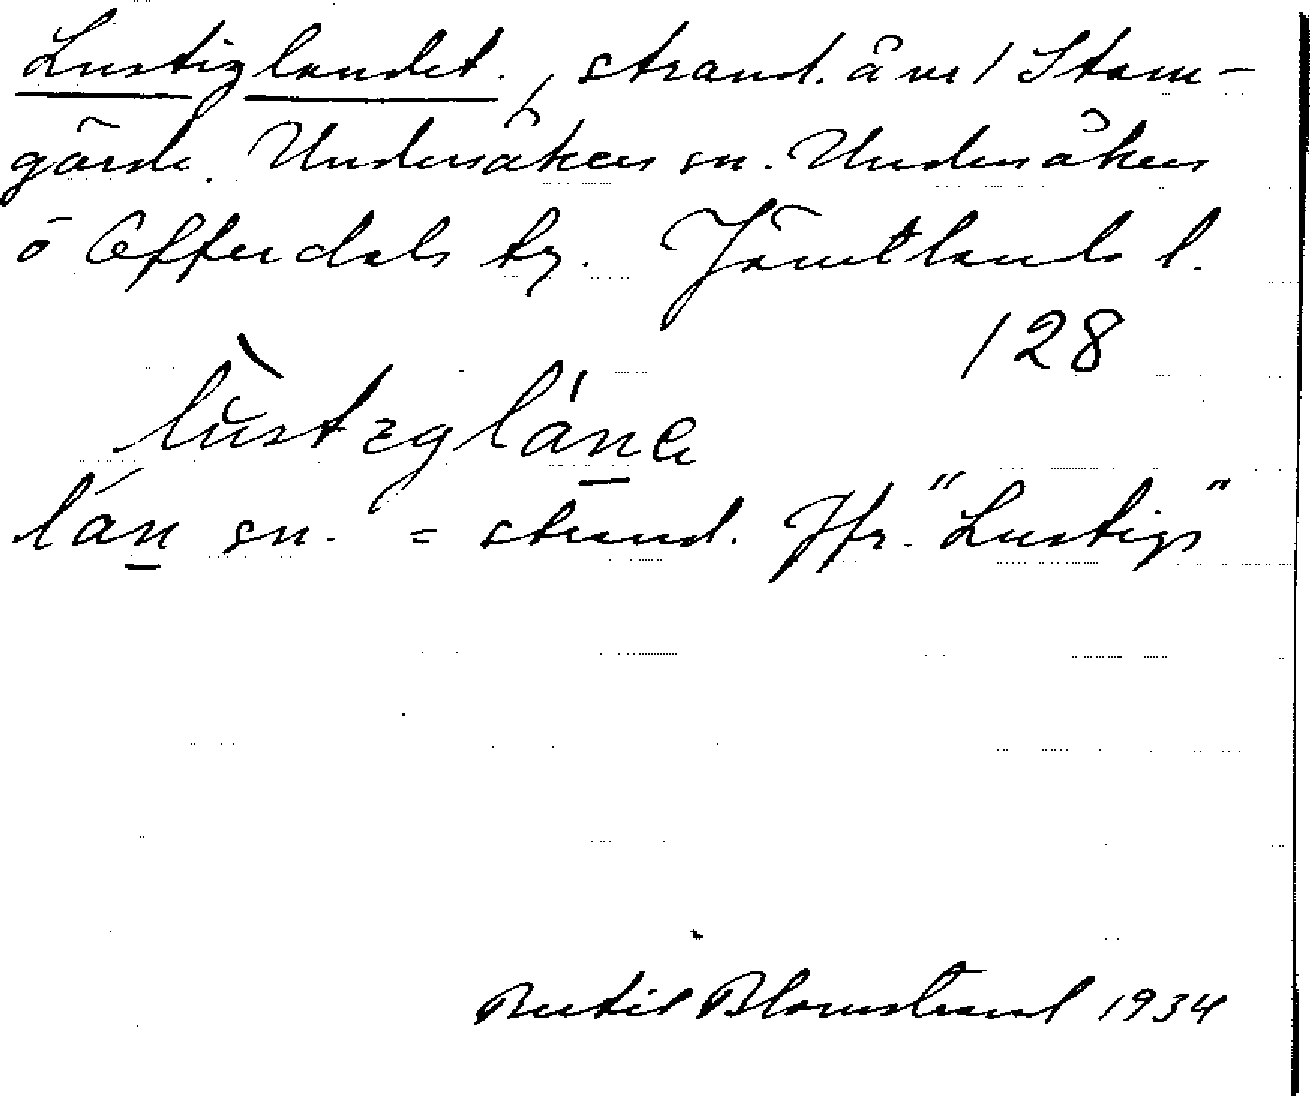 Lustiglandet., strand. å nr 1 Stam-
gärde. Undersåkers sn. Undersåkers
o Offerdals tg. Jämtlands l.
128
lùstɛglánɛ
lán sn. = strand. Jfr. "Lustigs"
Bertil Blomstrand 1934